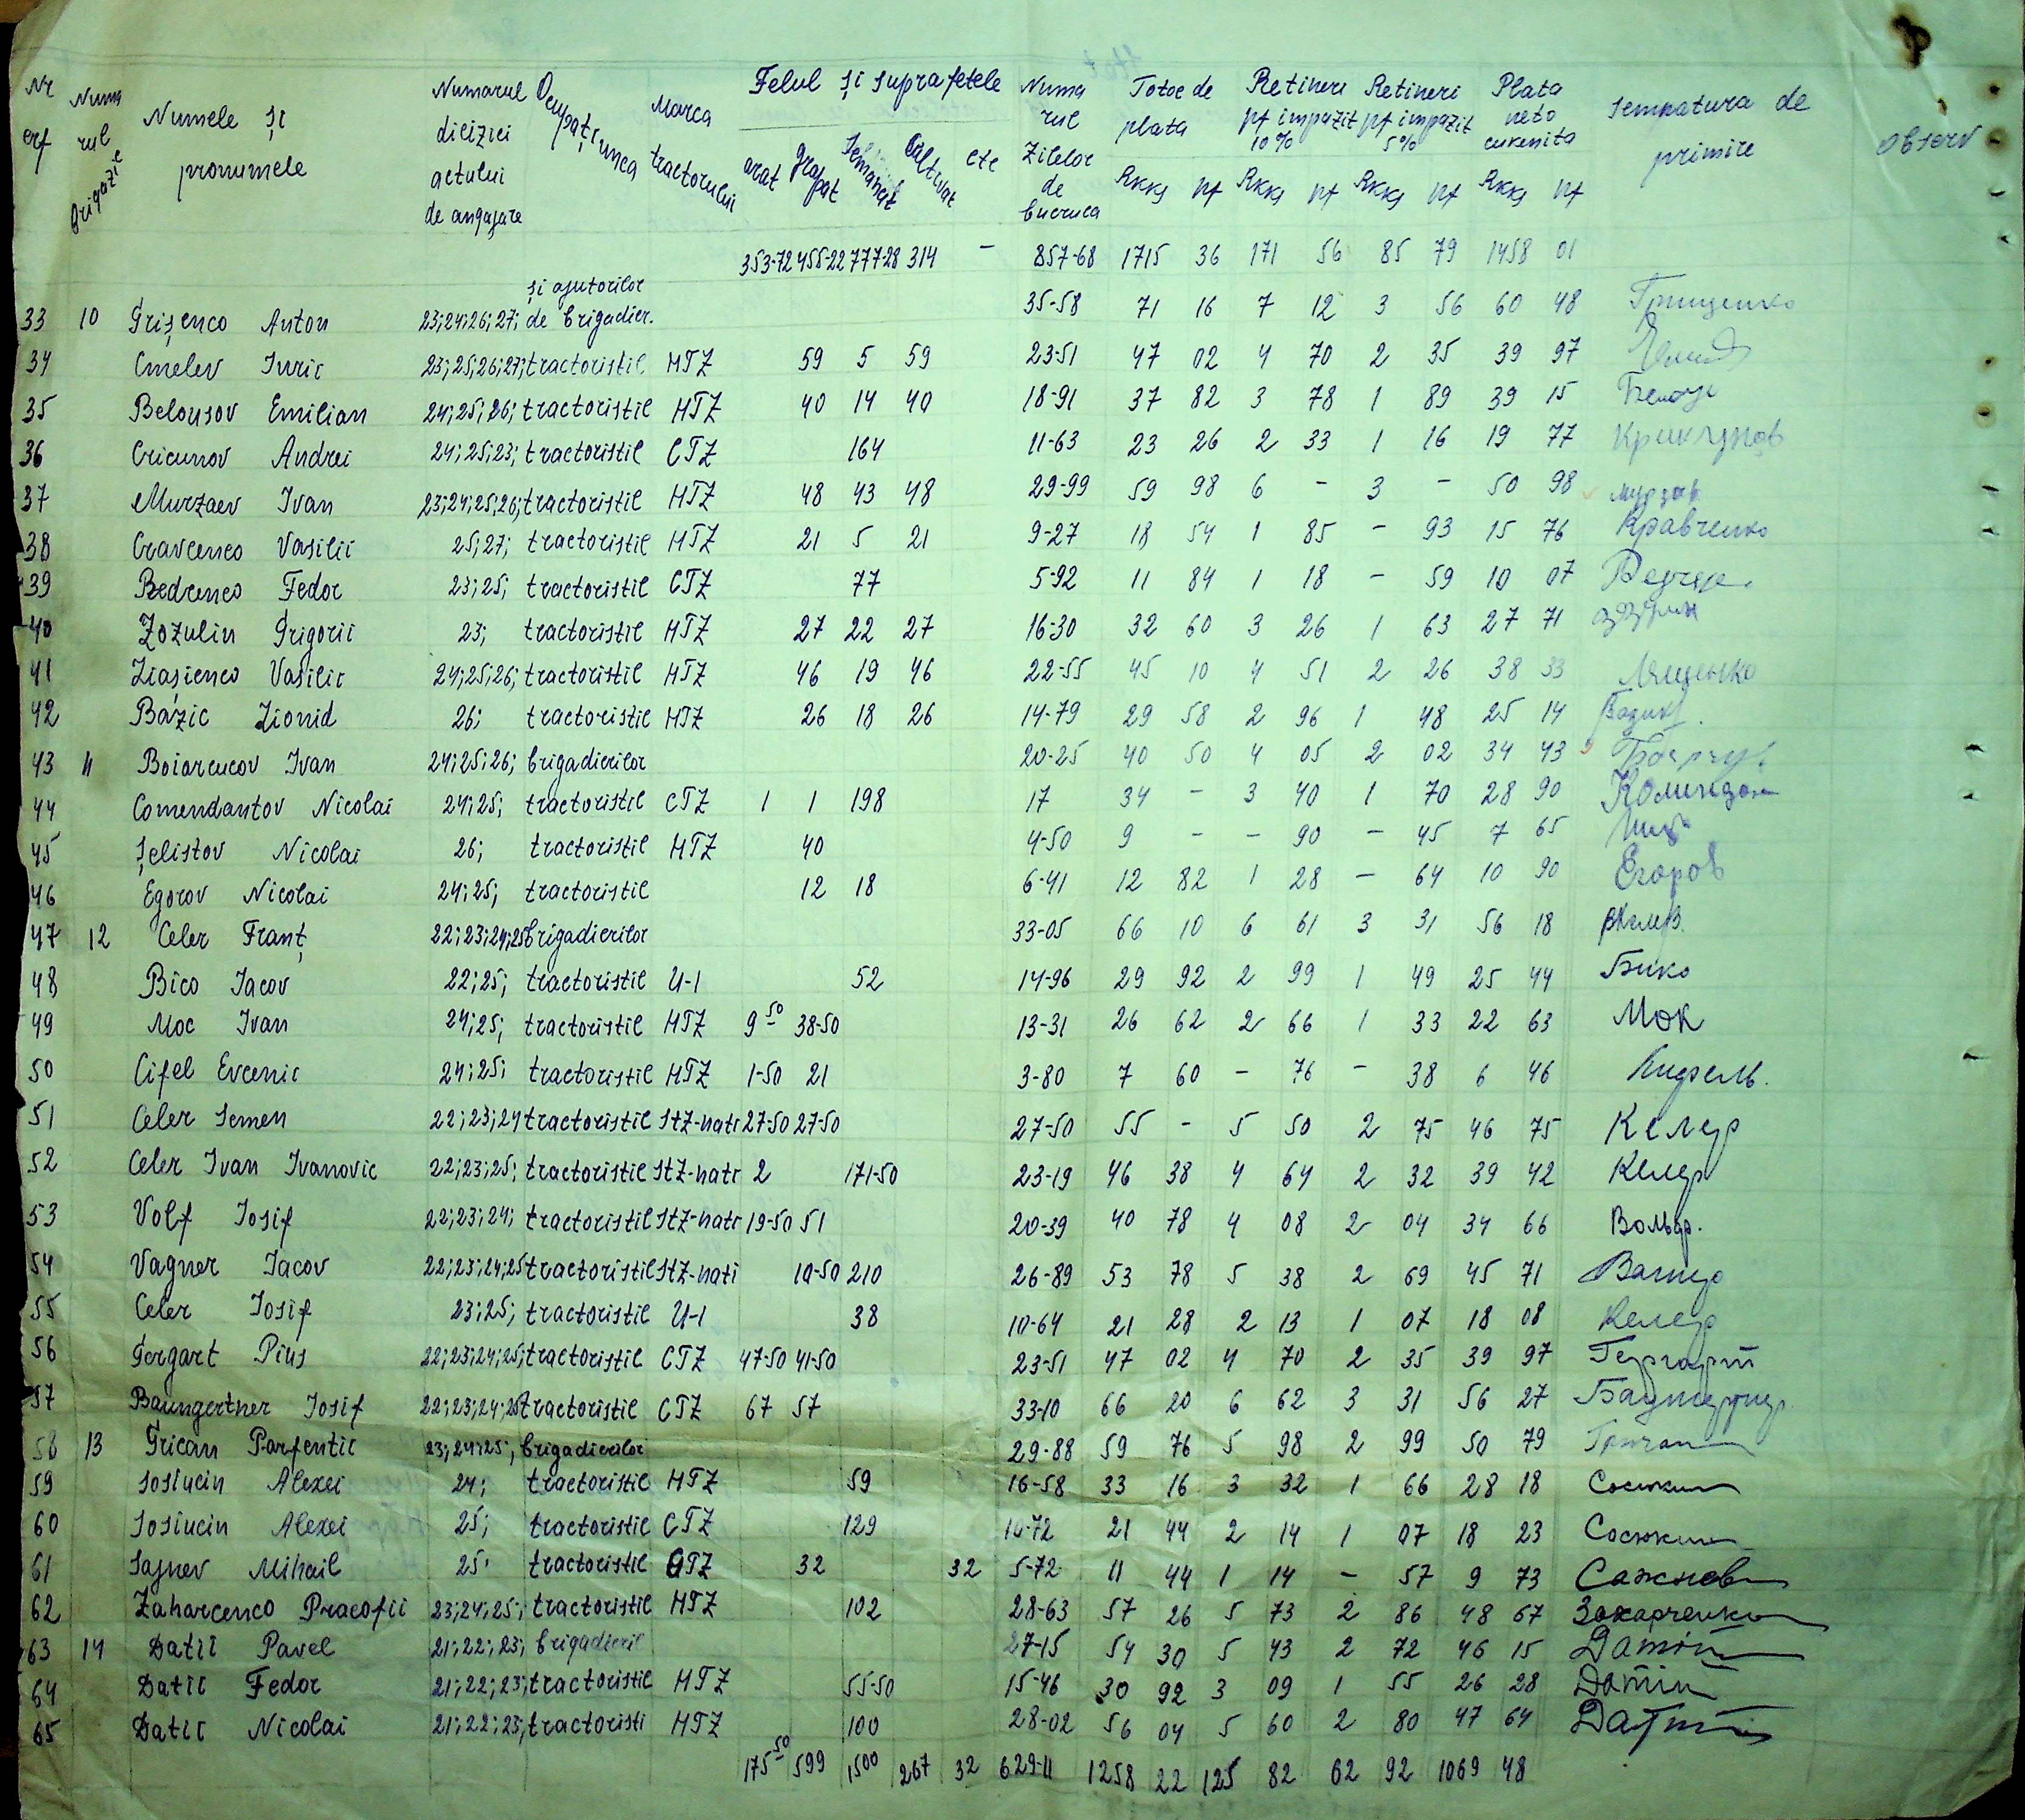 Nr crf Numarul brigazii Numele și pronumele Numarul diciziei actului de angajare Ocupațiunea Marca tractorului Felul și suprafetele arat grapat semanat cultivat etc Numarul zilelor de lucruca Totoe de plata Rkks pf Retineri pf impozit 10% Rkks pf Retineri pf impozit 5% Rkks pf Plata neto cukenita Rkks pf semnatura de primire observ
353-72 455-22 777-28 314 - 857-68 1715 36 171 56 85 79 1458 01
33 10 Grișenco Anton 23;24;26;27; și ajutorilor de brigadier. 35-58 71 16 7 12 3 56 60 48 Грищенко
34 Cmelev Iuric 23;25;26;27; tractoristil HTZ 59 5 59 23-51 47 02 4 70 2 35 39 97
35 Belousov Emilian 24;25;26; tractoristil HTZ 40 14 40 18-91 37 82 3 78 1 89 39 15
36 Cricunov Andrei 24;25;23; tractoristil CTZ 164 11-63 23 26 2 33 1 16 19 77 Крикунов
37 Murzaev Ivan 23;24;25;26; tractoristil HTZ 48 43 48 29-99 59 98 6 - 3 - 50 98
38 Cravcenco Vasilii 25;27; tractoristil HTZ 21 5 21 9-27 18 54 1 85 - 93 15 76 Кравченко
39 Bedrenco Fedor 23;25; tractoristil CTZ 77 5-92 11 84 1 18 - 59 10 07
40 Zozulin Grigorii 23; tractoristil HTZ 27 22 27 16-30 32 60 3 26 1 63 27 71
41 Liașenco Vasilic 24;25;26; tractoristil HTZ 46 19 46 22-55 45 10 4 51 2 26 38 33 Лященко
42 Bazic Lionid 26; tractoristil HTZ 26 18 26 14-79 29 58 2 96 1 48 25 14
43 11 Boiarcucov Ivan 24;25;26; brigadierilor 20-25 40 50 4 05 2 02 34 43
44 Comendantov Nicolai 24;25; tractoristil CTZ 1 1 198 17 34 - 3 40 1 70 28 90
45 Șelistov Nicolai 26; tractoristil HTZ 40 4-50 9 - - 90 - 45 7 65
46 Egorov Nicolai 24;25; tractoristil 12 18 6-41 12 82 1 28 - 64 10 90 Егоров
47 12 Celer Franț 22;23;24;25 brigadierilor 33-05 66 10 6 61 3 31 56 18
48 Bico Iacov 22;25; tractoristil U-1 52 14-96 29 92 2 99 1 49 25 44 Бико
49 Moc Ivan 24;25; tractoristil HTZ 9 50 38-50 13-31 26 62 2 66 1 33 22 63 Мок
50 Cifel Evcenic 24;25; tractoristil HTZ 1-50 21 3-80 7 60 - 76 - 38 6 46
51 Celer Semen 22;23;24 tractoristil StZ-nati 27-50 27-50 27-50 55 - 5 50 2 75 46 75 Келер
52 Celer Ivan Ivanovic 22;23;25; tractoristil StZ-nati 2 171-50 23-19 46 38 4 64 2 32 39 42 Келер
53 Volf Iosif 22;23;24; tractoristil StZ-nati 19-50 51 20-39 40 78 4 08 2 04 34 66 Вольф.
54 Vagner Iacov 22;23;24;25 tractoristil StZ-nati 10-50 210 26-89 53 78 5 38 2 69 45 71 Вагнер
55 Celer Iosif 23;25; tractoristil U-1 38 10-64 21 28 2 13 1 07 18 08 Келер
56 Gergart Pius 22;23;24;25; tractoristil CTZ 47-50 41-50 23-51 47 02 4 70 2 35 39 97 Гергарт
57 Baumgertner Iosif 22;23;24;25 tractoristil CTZ 67 57 33-10 66 20 6 62 3 31 56 27
58 13 Grican Parfentic 23;24;25; brigadierilor 29-88 59 76 5 98 2 99 50 79 Гричан
59 Sosiucin Alexei 24; tractoristil HTZ 59 16-58 33 16 3 32 1 66 28 18 Сосюкин
60 Sosiucin Alexei 25; tractoristil CTZ 129 10-72 21 44 2 14 1 07 18 23 Сосюкин
61 Sajnev Mihail 25; tractoristil CTZ 32 32 5-72 11 44 1 14 - 57 9 73 Сажнев
62 Zaharcenco Pracofii 23;24;25; tractoristil HTZ 102 28-63 57 26 5 73 2 86 48 67 Захарченко
63 14 Datii Pavel 21;22;23; brigadieril 27-15 54 30 5 43 2 72 46 15
64 Datii Fedor 21;22;23; tractoristil HTZ 55-50 15-46 30 92 3 09 1 55 26 28
65 Datii Nicolai 21;22;23; tractoristi HTZ 100 28-02 56 04 5 60 2 80 47 64
175 50 599 1500 267 32 629-11 1258 22 125 82 62 92 1069 48